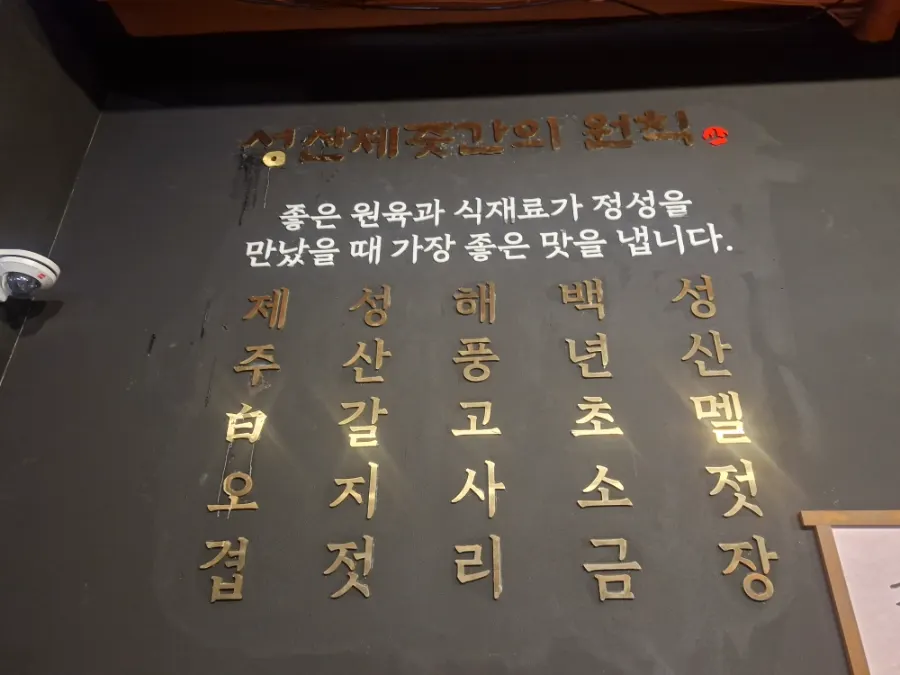 성산제줏간의 원칙
좋은 원육과 식재료가 정성을
만났을 때 가장 좋은 맛을 냅니다.
제주白오겹
성산갈지젓
해풍고사리
백년초소금
성산멜젓장